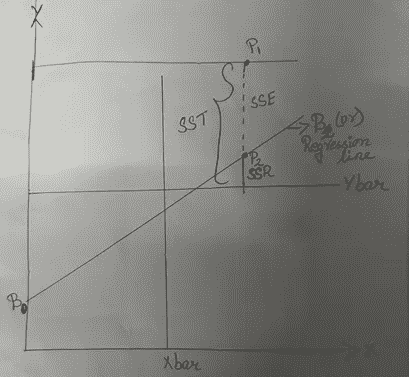 Y
P1
SSE
SST
B1 (or)
Regression
line
P2
SSR
Ybar
B0
Xbar
X